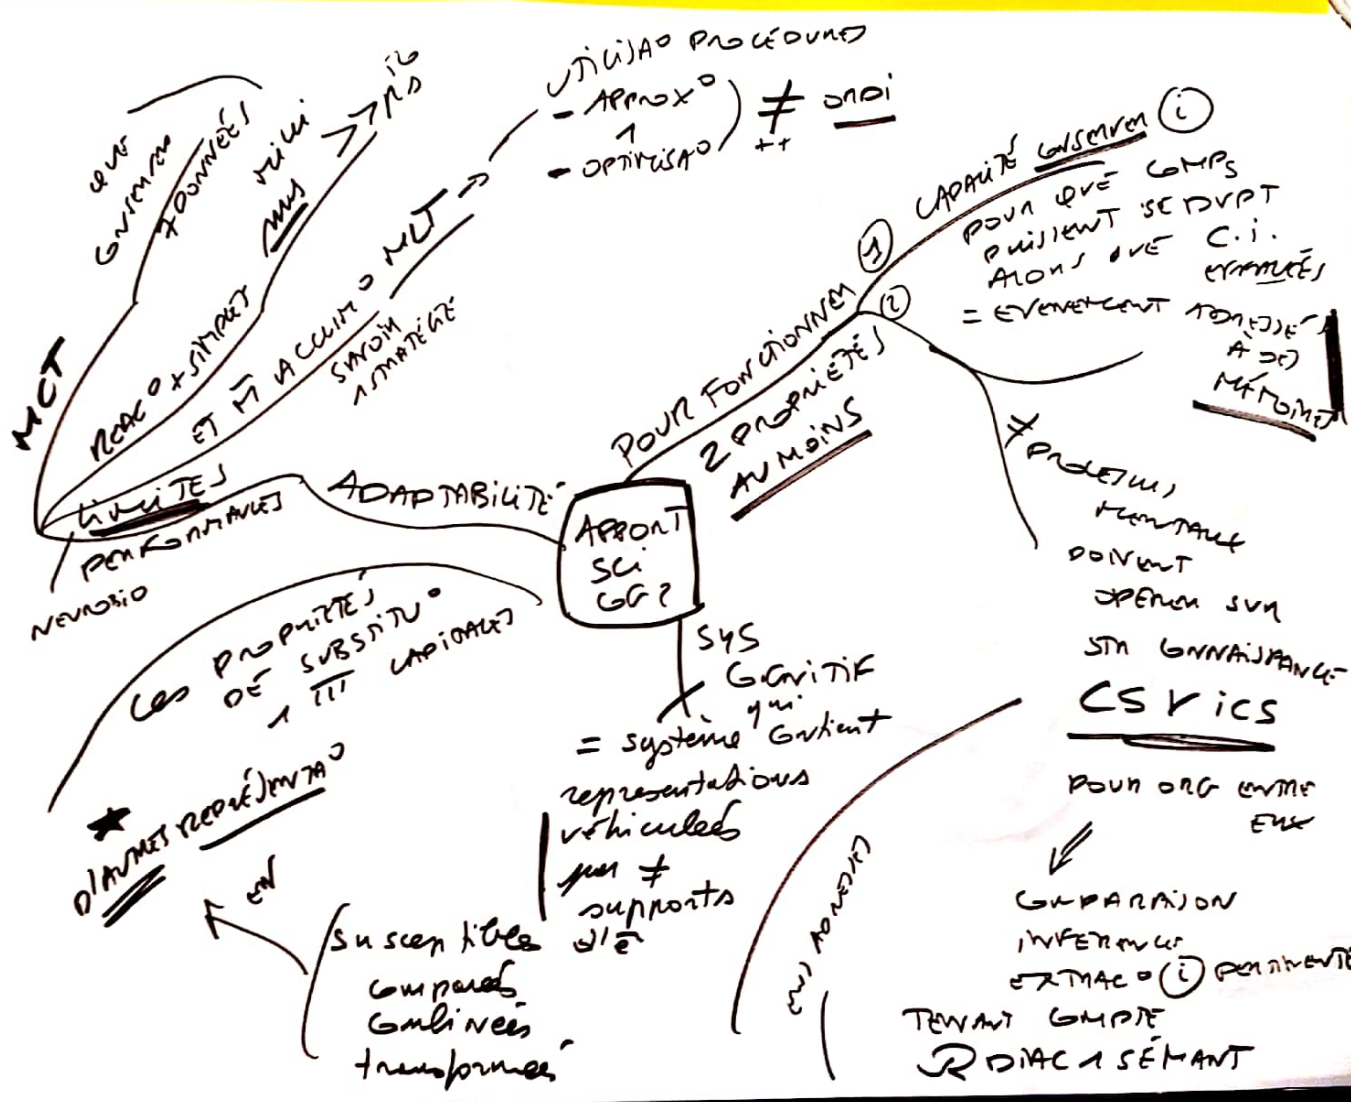 APPORT
SCi
COG?
POUR FONCTIONNER
2 PROPRIÉTÉS
AU MOINS
1
CAPACITÉ CONSERVER i
POUR QUE COMPS
PUISSENT SE DVPT
ALORS QUE C.i.
= EVENEMENT ADRESSÉ
À DES
MÉMOIRES
2
≠ PROCESSUS
MENTAUX
DOIVENT
OPÉRER SUR
STR CONNAISSANCE
CS √ iCS
POUR ORG ENTRE
EUX
COMPARAISON
INFÉRENCE
EXTRAC° i PERTINENTE
TENANT COMPTE
R DIAC 1 SÉMANT
SYS
COGNiTiF
= système qui contient
représentations
véhiculées
par ≠
supports
d'ê
susceptibles
comparées
combinées
transformées
EN
D'AUTRES REPRÉSENTA°
Les PROPRIÉTÉS
DE SUBSTITU°
1 III CAPITALES
ADAPTABILITÉ
LIMITES
PERFORMANCES
NEUROBIO
MCT
QUE
CONSERVER
7 DONNÉES
REAC° + SIMPLES
MILLI
ET M̄ ACCUM° MLT
SAVOIR
1 STRATÉGIE
UTILISA° PROCÉDURES
- APPROX°
1
- OPTIMISA°
≠ ORDI
++